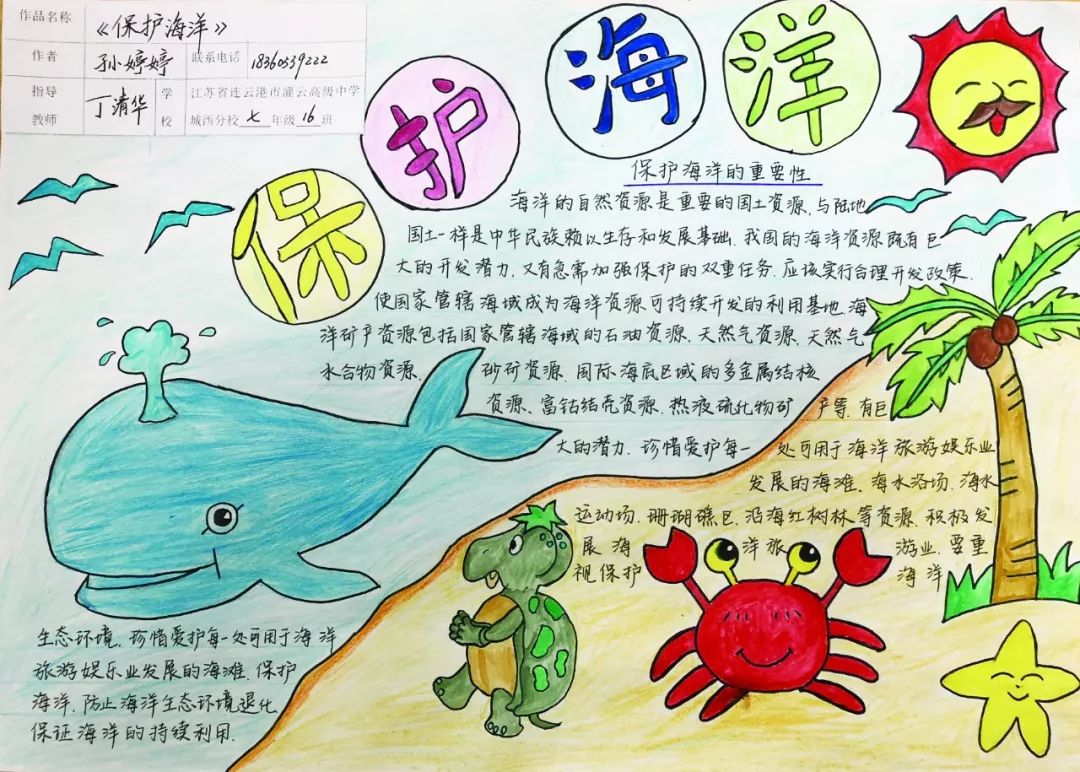 作品名称 《保护海洋》
作者 孙婷婷 联系电话 18360539222
指导教师 丁清华 学校 江苏省连云港市灌云高级中学
城西分校七年级16班
保护海洋
保护海洋的重要性
海洋的自然资源是重要的国土资源，与陆地
国土一样是中华民族赖以生存和发展基础，我国的海洋资源既有巨
大的开发潜力，又有急需加强保护的双重任务，应该实行合理开发政策，
使国家管辖海域成为海洋资源可持续开发的利用基地，海
洋矿产资源包括国家管辖海域的石油资源、天然气资源、天然气
水合物资源、砂矿资源、国际海底区域的多金属结核
资源、富钴结壳资源、热液硫化物矿产等，有巨
大的潜力，珍惜爱护每一处可用于海洋旅游娱乐业
发展的海滩、海水浴场、海水
运动场、珊瑚礁区、沿海红树林等资源，积极发
展海洋旅游业，要重
视保护海洋
生态环境，珍惜爱护每一处可用于海洋
旅游娱乐业发展的海滩，保护
海洋，防止海洋生态环境退化
保证海洋的持续利用.